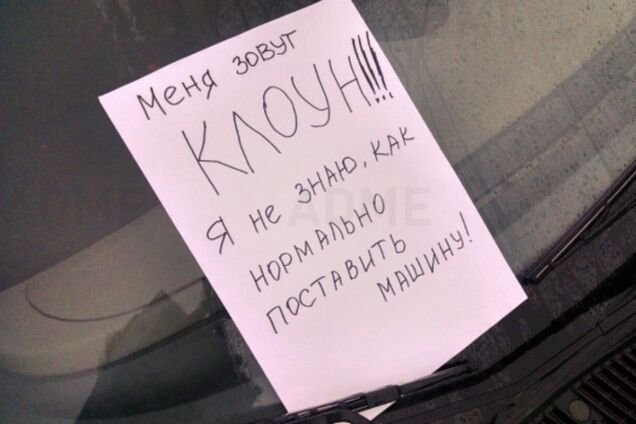 Меня зовут
КЛОУН!!!
Я не знаю, как
нормально
поставить
машину!
ADME